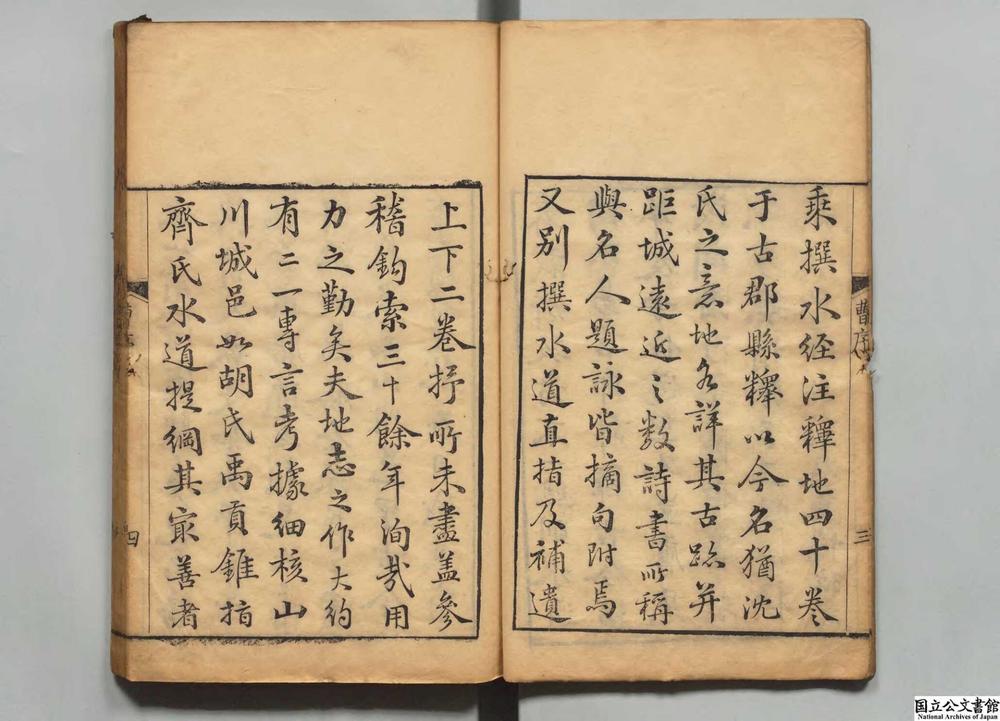 乘撰水经注釋地四十卷
于古郡縣釋以今名猶沈
氏之意地名詳其古跡并
距城遠近之数詩書所稱
與名人題詠皆摘句附焉
又别撰水道直指及補遺
曹序
三
上下二卷抒所未盡盖參
稽鈎索三十餘年洵哉用
力之勤矣夫地志之作大約
有二一專言考據细核山
川城邑如胡氏禹貢錐指
齊氏水道提綱其㝡善者
四
国立公文書館
National Archives of Japan